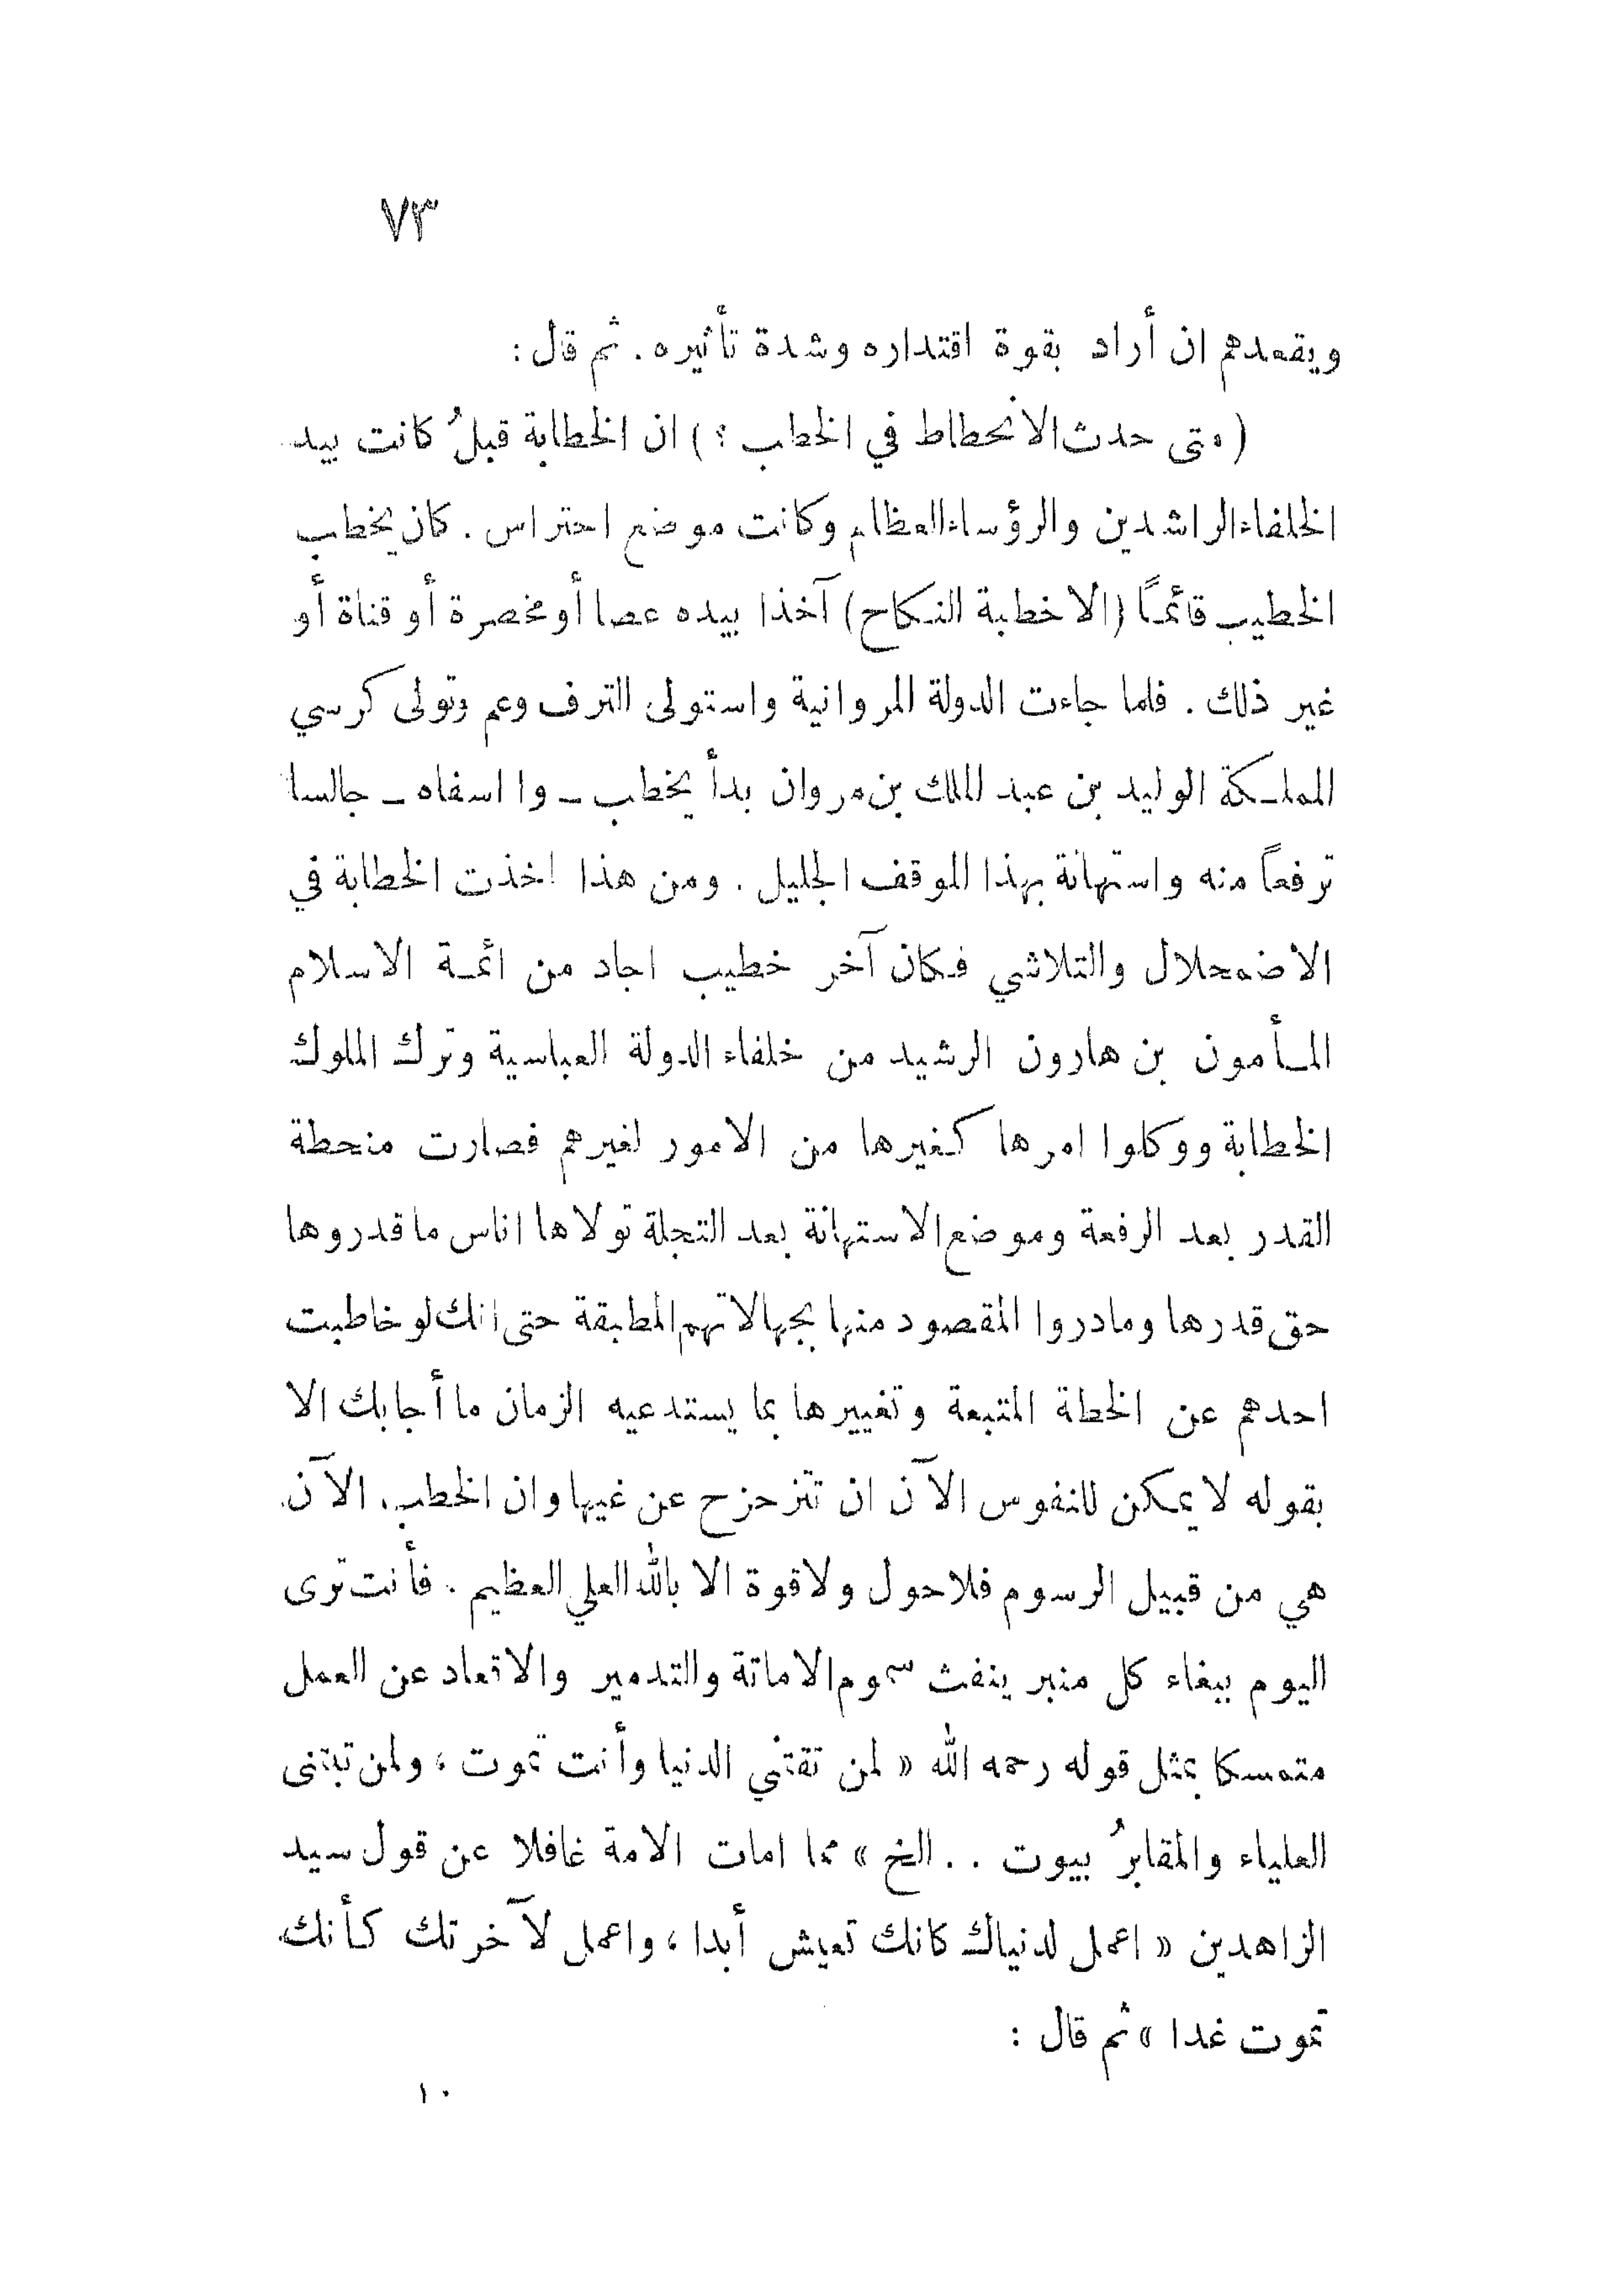 ٧٣
ويقعدهم ان أراد بقوة اقتداره وشدة تأثيره. ثم قال:
(متى حدث الانحطاط في الخطب ؟) ان الخطابة قبلُ كانت بيد
الخلفاء الراشدين والرؤساء العظام وكانت موضع احتراس. كان يخطب
الخطيب قائمًا (الا خطبة النكاح) آخذا بيده عصا أو مخصرة أو قناة أو
غير ذلك. فلما جاءت الدولة المروانية واستولى الترف وعم وتولى كرسي
المملكة الوليد بن عبد الملك بن مروان بدأ يخطب ـ وا اسفاه ـ جالسا
ترفعاً منه واستهانة بهذا الموقف الجليل. ومن هذا اخذت الخطابة في
الاضمحلال والتلاشي فكان آخر خطيب اجاد من ائمة الاسلام
المأمون بن هارون الرشيد من خلفاء الدولة العباسية وترك الملوك
الخطابة ووكلوا امرها كغيرها من الامور لغيرهم فصارت منحطة
القدر بعد الرفعة وموضع الاستهانة بعد التجلة تولاها اناس ما قدروها
حق قدرها وما دروا المقصود منها بجهالاتهم المطبقة حتى انك لو خاطبت
احدهم عن الخطة المتبعة وتغييرها بما يستدعيه الزمان ما أجابك الا
بقوله لا يمكن للنفوس الآن ان تتزحزح عن غيها وان الخطب. الآن
هي من قبيل الرسوم فلا حول ولا قوة الا بالله العلي العظيم. فأنت ترى
اليوم ببغاء كل منبر ينفث سموم الاماتة والتدمير والاتعاد عن العمل
متمسكا بمثل قوله رحمه الله « لمن تقتني الدنيا وأنت تموت ، ولمن تبتنى
العلياء والمقابرُ بيوت . . الخ » مما امات الامة غافلا عن قول سيد
الزاهدين « اعمل لدنياك كانك تعيش أبدا ، واعمل لآخرتك كأنك
تموت غدا » ثم قال :
١٠